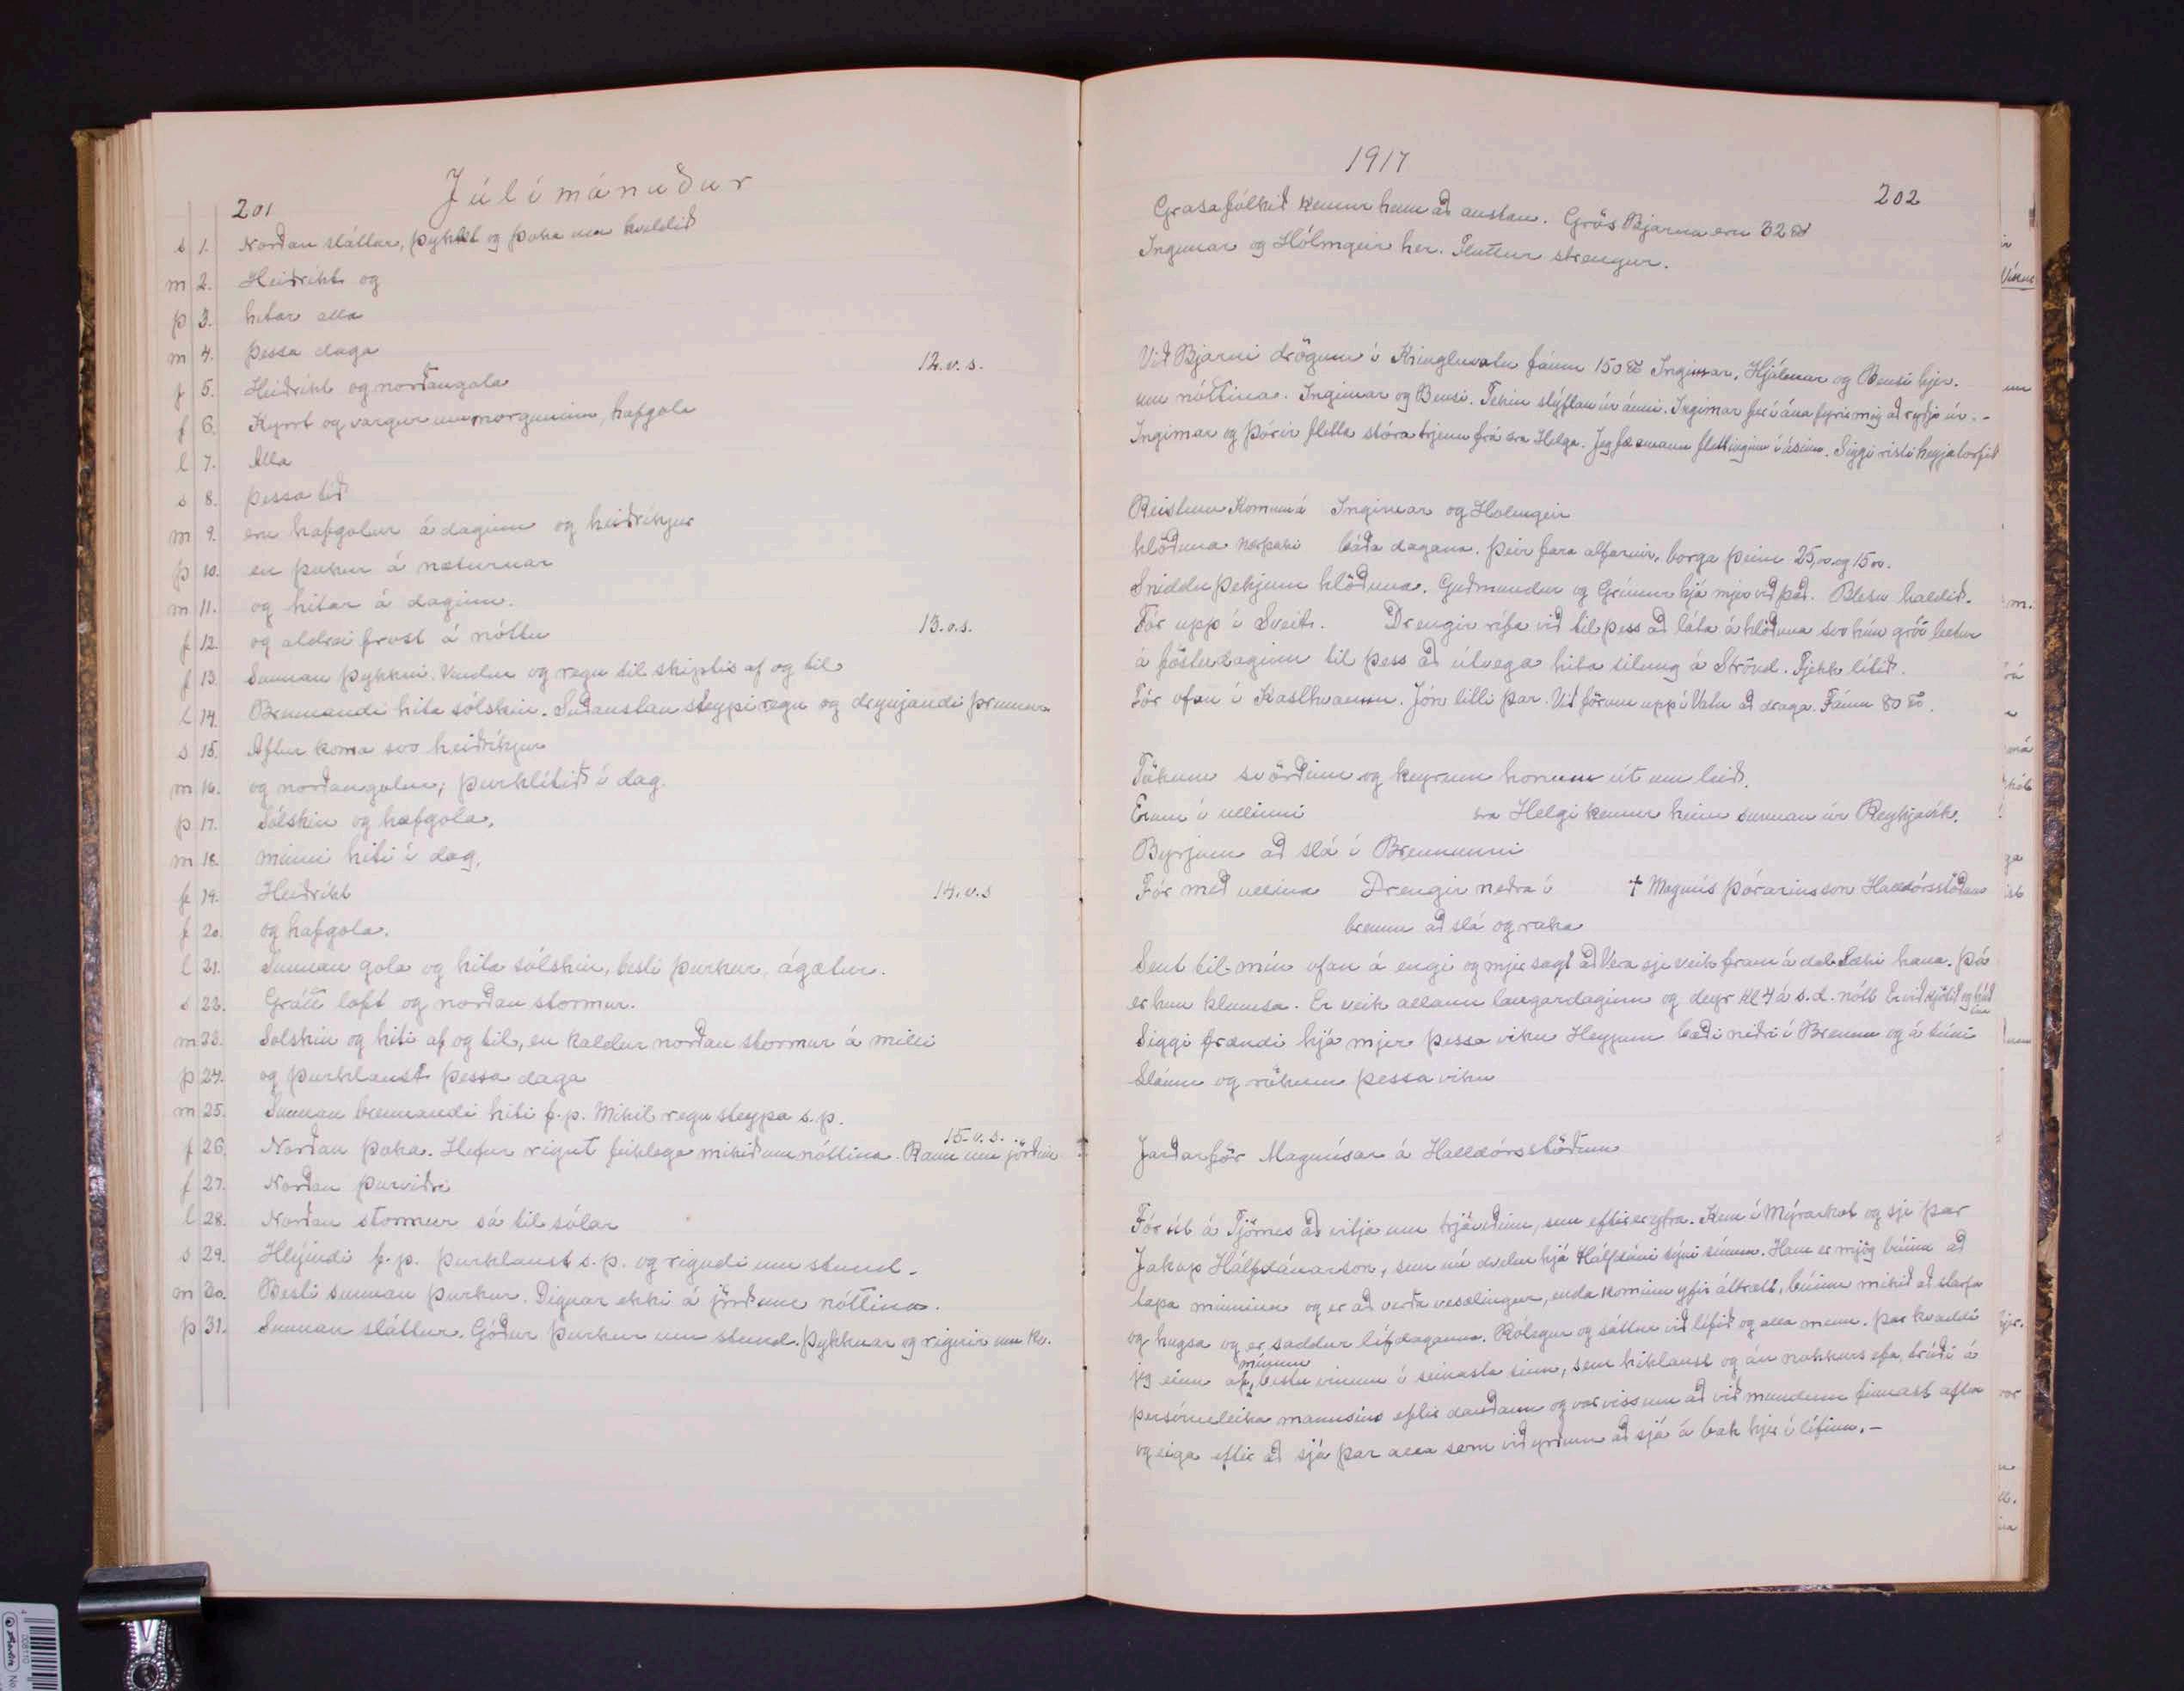 201
Júlímánuður
s 1. Norðan sláttur, þykkt og þoka um kveldið
m 2. Heiðríkt og
þ 3. hitar alla
m 4. þessa daga
12.v.s.
f 5. Heiðríkt og norðangola
f 6. Kyrrt og vargur um morguninn, hafgola
l 7. Alla
s 8. þessa tíð
m 9. eru hafgolur á daginn og heiðríkjur
þ 10. en þokur á næturnar
m 11. og hitar á daginn.
13.v.s.
f 12. og aldrei frost á nóttu
f 13. Sunnan þykkni. Vindur og regn til skiptis af og til
l 14. Brennandi hita sólskin. Suðaustan steypiregn og drynjandi þrumur
s 15. Aftur koma svo heiðríkjur
m 16. og norðangolur; þurklítið í dag.
þ 17. Sólskin og hafgola.
m 18. minni hiti í dag.
14.v.s
f 19. Heiðríkt
f 20. og hafgola.
l 21. Sunnan gola og hita sólskin, besti þurkur, ágætur.
s 22. Grátt loft og norðan stormur.
m 23. Sólskin og hiti af og til, en kaldur norðan stormur á milli
þ 24. og þurklaust þessa daga
m 25. Sunnan brennandi hiti f.p. Mikil regn steypa s.p.
15.v.s.
f 26. Norðan þoka. Hefur rignt feiklega mikið um nóttina. Rann um jörðina
f 27. Norðan þurviðri
l 28. Norðan stormur sá til sólar
s 29. Hlýindi f.p. þurklaust s.p. og rigndi um stund.
m 30. Besti sunnan þurkur. Dignar ekki á jörð um nóttina.
þ 31. Sunnan sláttur. Góður þurkur um stund. Þykknar og rignir um kv.
1917
202
Grasafólkið kemur heim að austan. Grös Bjarna eru 32 ℔
Ingimar og Hólmgeir her. Fluttur strengur.
Við Bjarni drögum í Kringluvatn fáum 150 ℔ Ingimar, Hjálmar og Bensi hjer.
um nóttina. Ingimar og Bensi. Tekin stýflan úr ánni. Ingimar fer í ána fyrir mig að ryðja úr. -
Ingimar og Þórir fletta stóra trjenu frá sra Helga. Jeg fæ annan flettinginn í ásinn. Siggi risti heyjatorfið
Reistum Komum á Ingimar og Holmgeir
hlöðuna báða dagana. Þeir fara alfarnir, borga þeim 25,00 og 15 00.
Sniddu þekjum hlöðuna. Guðmundur og Grímur hjá mjer við það. Blesu haldið.
Fór upp í Sveit. Drengir rífa við til þess að láta á hlöðuna svo hún grói betur
á föstudaginn til þess að útvega hita silung á Strönd. Fjekk lítið.
Fór ofan í Kasthvamm. Jón litli þar. Við förum upp í Vatn að draga. Fáum 80 ℔.
Tökum svörðinn og keyrum honum út um leið.
Erum í ullinni sra Helgi kemur heim sunnan úr Reykjavík.
Byrjum að slá í Brennunni
Fór með ullina Drengir neðra í † Magnús Þórarinsson Halldórsstöðum
brennu að slá og raka
Sent til mín ofan á engi og mjer sagt að Vera sje veik fram á dal Sæki hana. Þá
er hun klumsa. Er veik allann laugardaginn og deyr Kl 4 á s.d. nótt Er við kjötið og húðina
Siggi frændi hjá mjer þessa viku Heyjum bæði niðri í Brennu og á túni
Sláum og rökum þessa viku
Jarðarför Magnúsar á Halldórsstöðum
Fór út á Tjörnes að vitja um trjáviðinn, sem eftir er ytra. Kem í Mýrarkot og sje þar
Jakop Hálfdánarson, sem nú dvelur hjá Hálfdáni syni sínum. Hann er mjög búinn að
tapa minninu og er að verða vesælingur, enda kominn yfir áttrætt, búinn mikið að starfa
og hugsa og er saddur lífdaganna. Rólegur og sáttur við lífið og alla menn. Þar kvaddi
jeg einn af mínum bestu vinum í seinasta sinn, sem hiklaust og án nokkurs efa, trúði á
persónuleika mannsins eftir dauðann og var viss um að við mundum finnast aftur
og eiga eftir að sjá þar alla sem við yrðum að sjá á bak hjer í lífinu. -